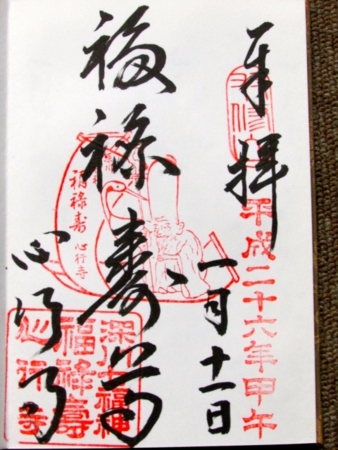 奉拝
平成二十六年甲午
一月十一日
福禄寿尊
福禄寿
心行寺
心行寺
深川七福神
福禄壽
心行寺